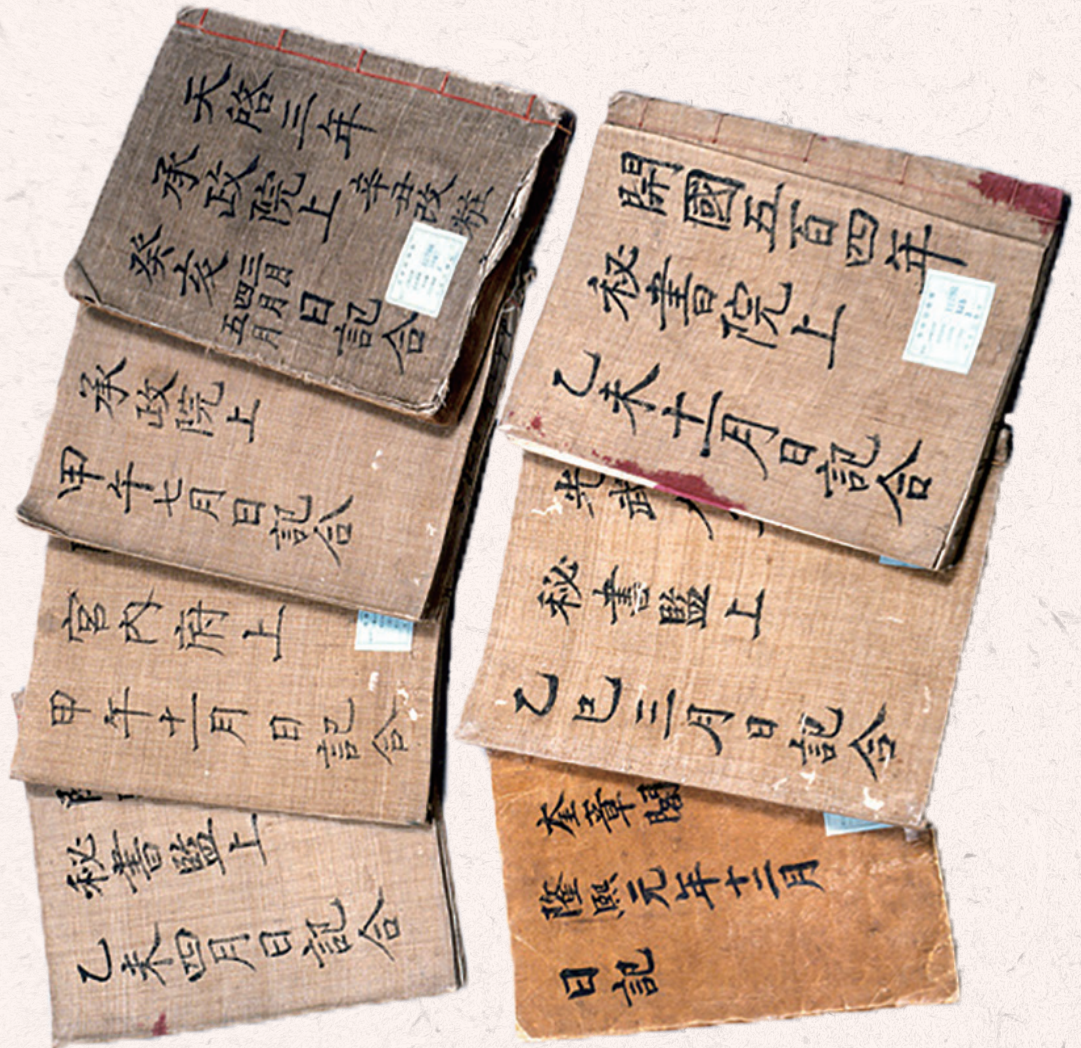 天啓三年
辛丑改粧
承政院上
癸亥三月四月五月日記合
承政院上
甲午七月日記合
宮內府上
甲午十一月日記合
秘書監上
乙未四月日記合
開國五百四年
秘書院上
乙未十一月日記合
光武
秘書監上
乙巳三月日記合
奎章閣
隆熙元年十二月
日記